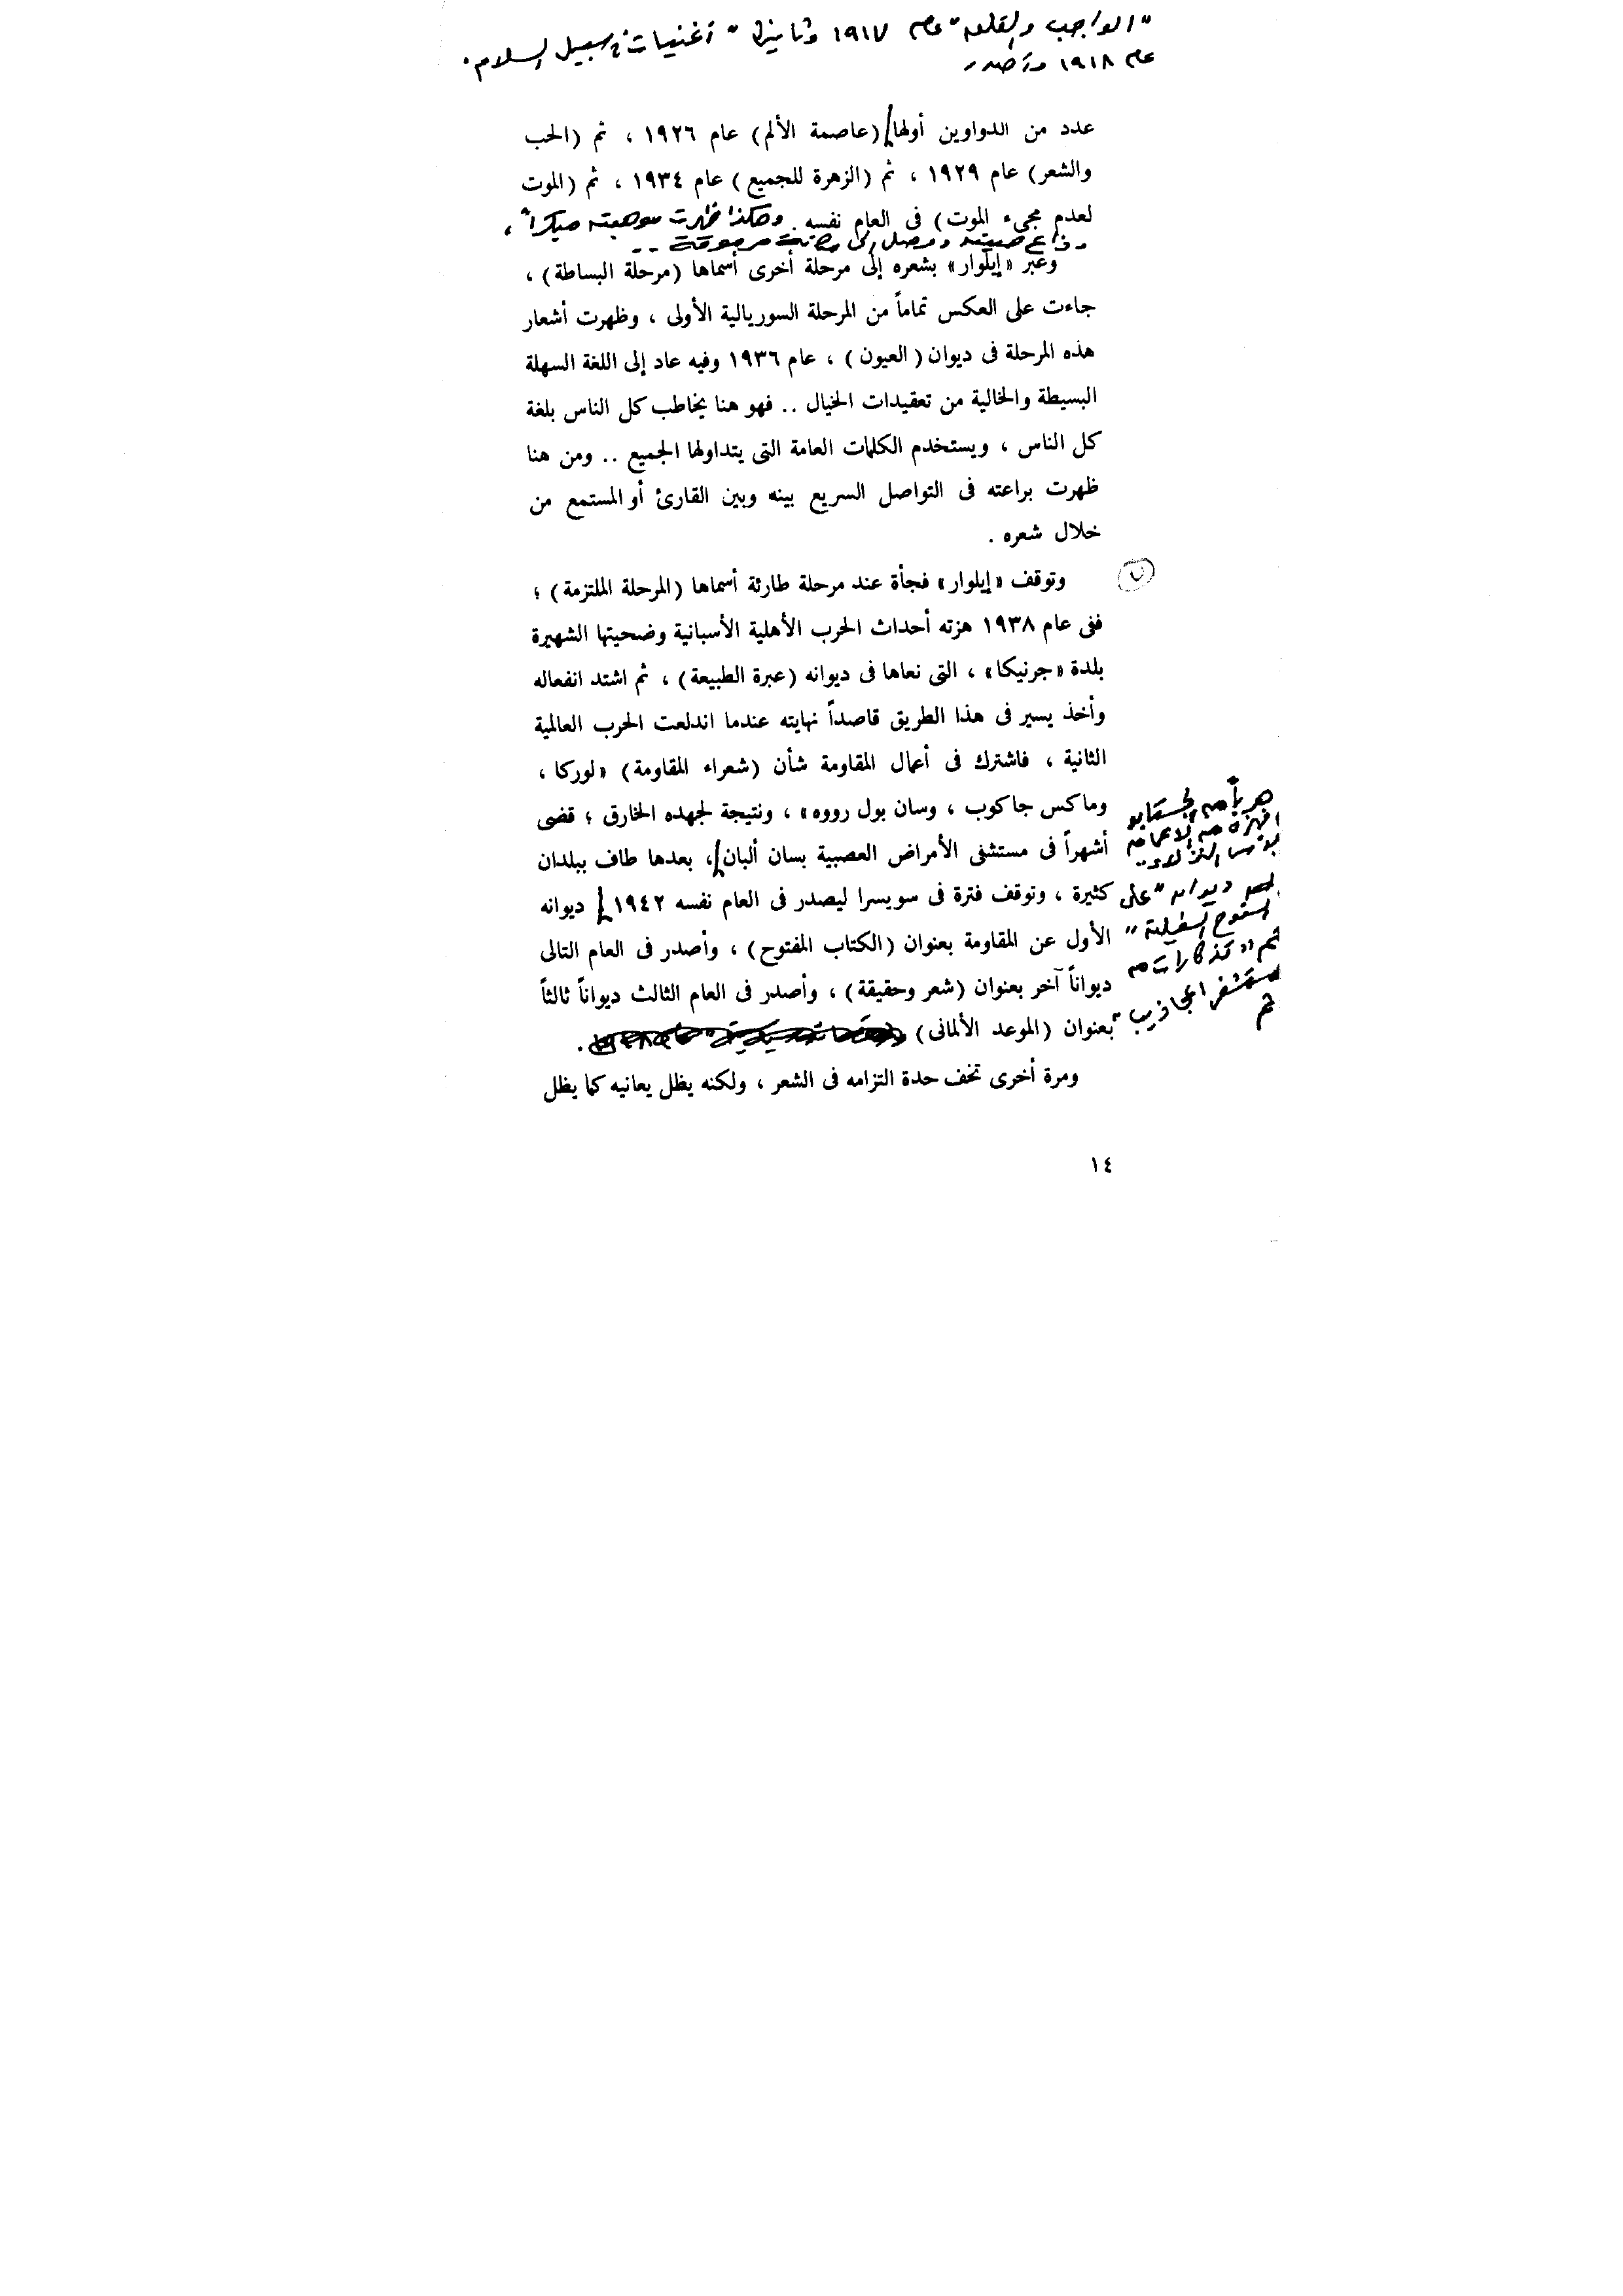 "الواجب والقلق" عام ١٩١٧ وثانيها "أغنيات في سبيل السلام"
عام ١٩١٨ وأصدر
عدد من الدواوين أولها (عاصمة الألم) عام ١٩٢٦ ، ثم (الحب
والشعر) عام ١٩٢٩ ، ثم (الزهرة للجميع) عام ١٩٣٤ ، ثم (الموت
لعدم مجىء الموت) فى العام نفسه . وهكذا ظهرت موهبته مبكراً ،
وذاع صيته ووصل إلى مكانة مرموقة ..
وعبر «إيلوار» بشعره إلى مرحلة أخرى أسماها (مرحلة البساطة) ،
جاءت على العكس تماماً من المرحلة السوريالية الأولى ، وظهرت أشعار
هذه المرحلة فى ديوان (العيون) ، عام ١٩٣٦ وفيه عاد إلى اللغة السهلة
البسيطة والخالية من تعقيدات الخيال .. فهو هنا يخاطب كل الناس بلغة
كل الناس ، ويستخدم الكلمات العامة التى يتداولها الجميع .. ومن هنا
ظهرت براعته فى التواصل السريع بينه وبين القارئ أو المستمع من
خلال شعره .
وتوقف «إيلوار» فجأة عند مرحلة طارئة أسماها (المرحلة الملتزمة) ؛
ففى عام ١٩٣٨ هزته أحداث الحرب الأهلية الأسبانية وضحيتها الشهيرة
بلدة «جرنيكا» ، التى نعاها فى ديوانه (عبرة الطبيعة) ، ثم اشتد انفعاله
وأخذ يسير فى هذا الطريق قاصداً نهايته عندما اندلعت الحرب العالمية
الثانية ، فاشترك فى أعمال المقاومة شأن (شعراء المقاومة) «لوركا ،
وماكس جاكوب ، وسان بول رووه» ، ونتيجة لجهده الخارق ؛ قضى
أشهراً فى مستشفى الأمراض العصبية بسان ألبان ، بعدها طاف ببلدان
كثيرة ، وتوقف فترة فى سويسرا ليصدر فى العام نفسه ١٩٤٢ ديوانه
الأول عن المقاومة بعنوان (الكتاب المفتوح) ، وأصدر فى العام التالى
ديواناً آخر بعنوان (شعر وحقيقة) ، وأصدر فى العام الثالث ديواناً ثالثاً
بعنوان (الموعد الألمانى) .
ومرة أخرى تخف حدة التزامه فى الشعر ، ولكنه يظل يعانيه كما يظل
ديوان "على
السفوح السفلية"
ثم "تذكارات من
مستشفى المجاذيب"
ثم
١٤